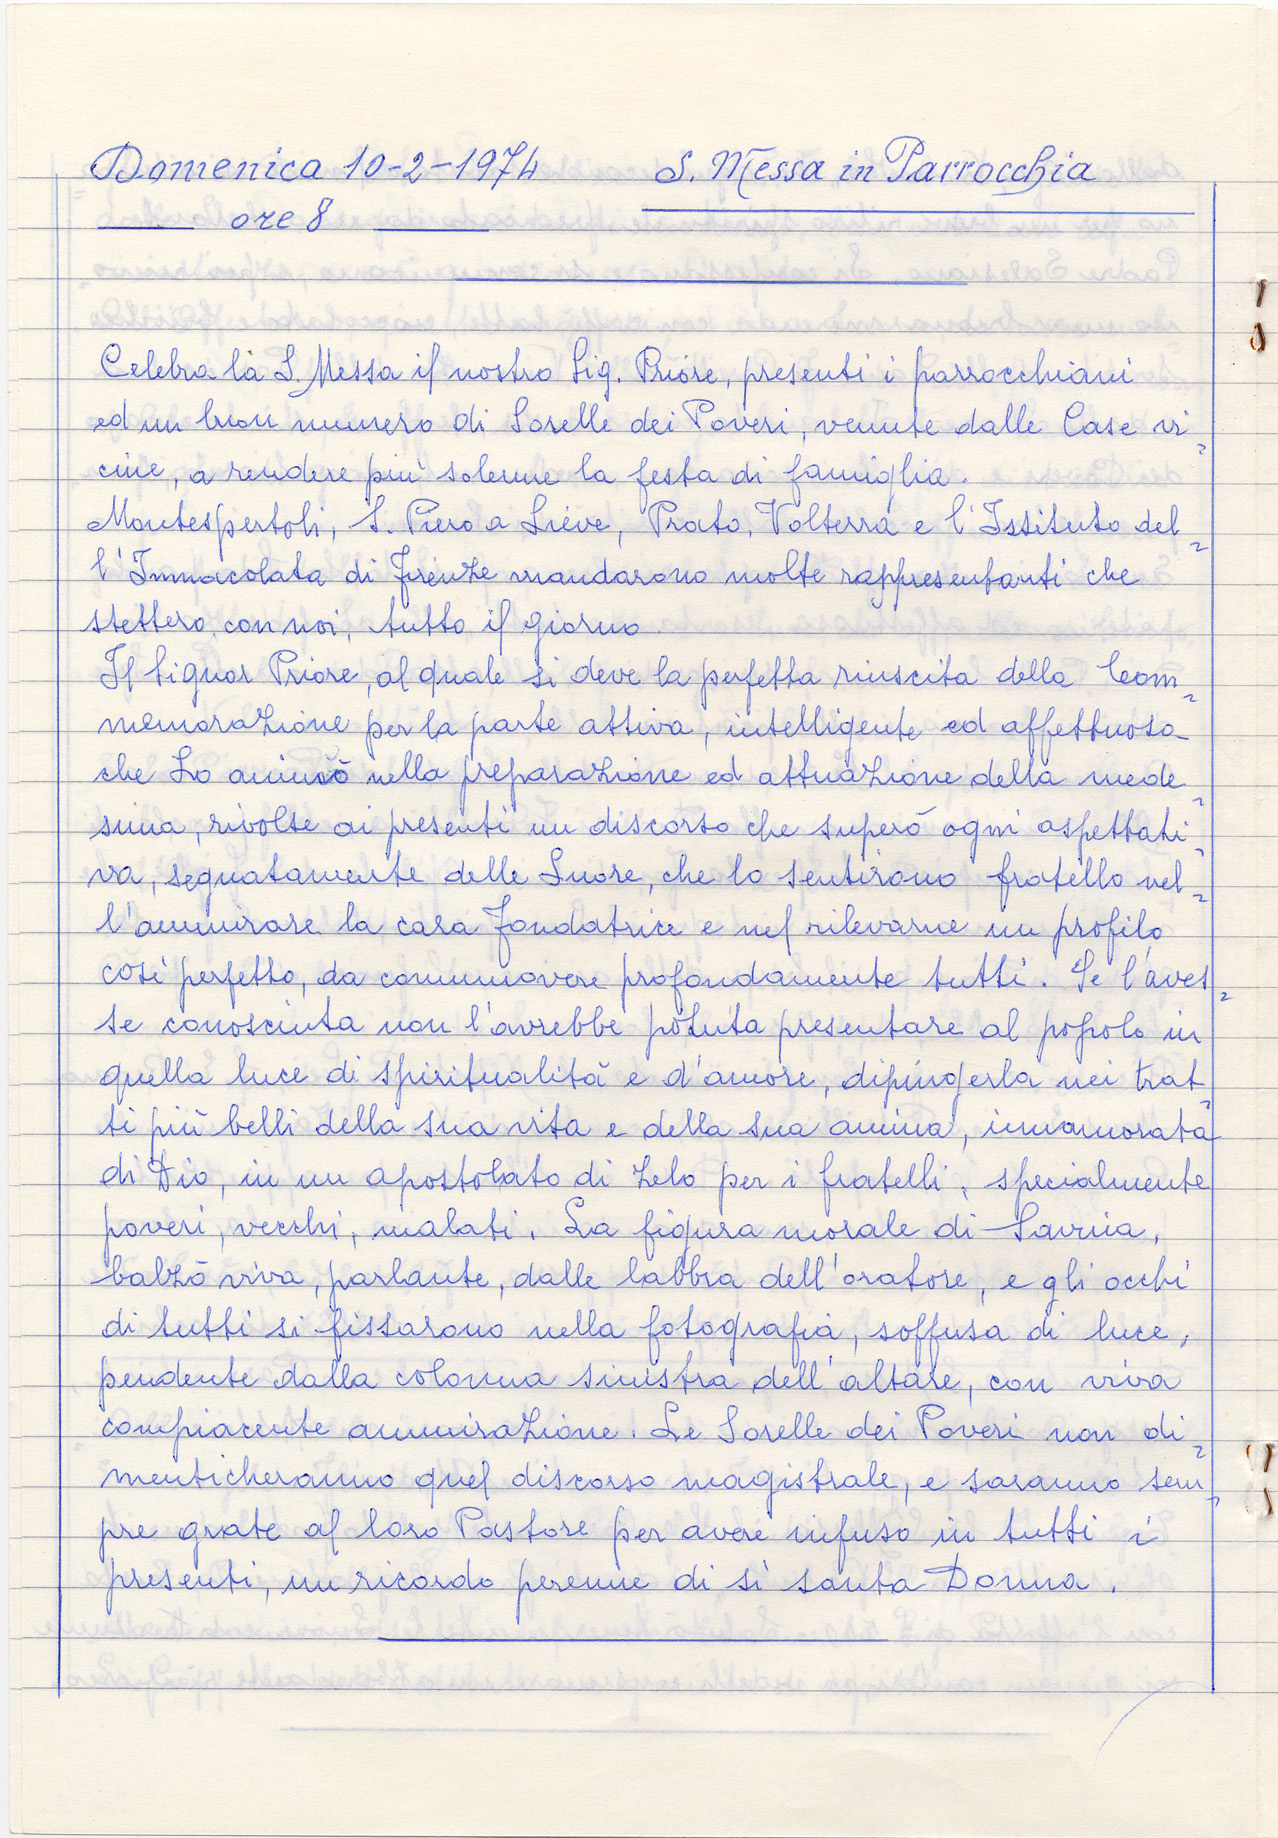 Domenica 10-2-1974 S. Messa in Parrocchia
ore 8
Celebra la S. Messa il nostro Sig. Priore, presenti i parrocchiani
ed un buon numero di Sorelle dei Poveri, venute dalle Case vi=
cine, a rendere più solenne la festa di famiglia.
Montespertoli, S. Piero a Sieve, Prato, Volterra e l'Istituto del=
l'Immacolata di Firenze mandarono molte rappresentanti che
stettero con noi, tutto il giorno.
Il Signor Priore, al quale si deve la perfetta riuscita della Com=
memorazione per la parte attiva, intelligente ed affettuosa
che Lo animò nella preparazione ed attuazione della mede=
sima, rivolse ai presenti un discorso che superò ogni aspettati=
va, segnatamente delle Suore, che lo sentirono fratello nel=
l'ammirare la cara Fondatrice e nel rilevarne un profilo
così perfetto, da commuovere profondamente tutti. Se l'aves=
se conosciuta non l'avrebbe potuta presentare al popolo in
quella luce di spiritualità e d'amore, dipingerla nei trat=
ti più belli della sua vita e della sua anima, innamorata
di Dio, in un apostolato di zelo per i fratelli, specialmente
poveri, vecchi, malati. La figura morale di Savina,
balzò viva, parlante, dalle labbra dell'oratore, e gli occhi
di tutti si fissarono nella fotografia, soffusa di luce,
pendente dalla colonna sinistra dell'altare, con viva
compiacente ammirazione. Le Sorelle dei Poveri non di=
menticheranno quel discorso magistrale, e saranno sem=
pre grate al loro Pastore per avere infuso in tutti i
presenti, un ricordo perenne di sì santa Donna.